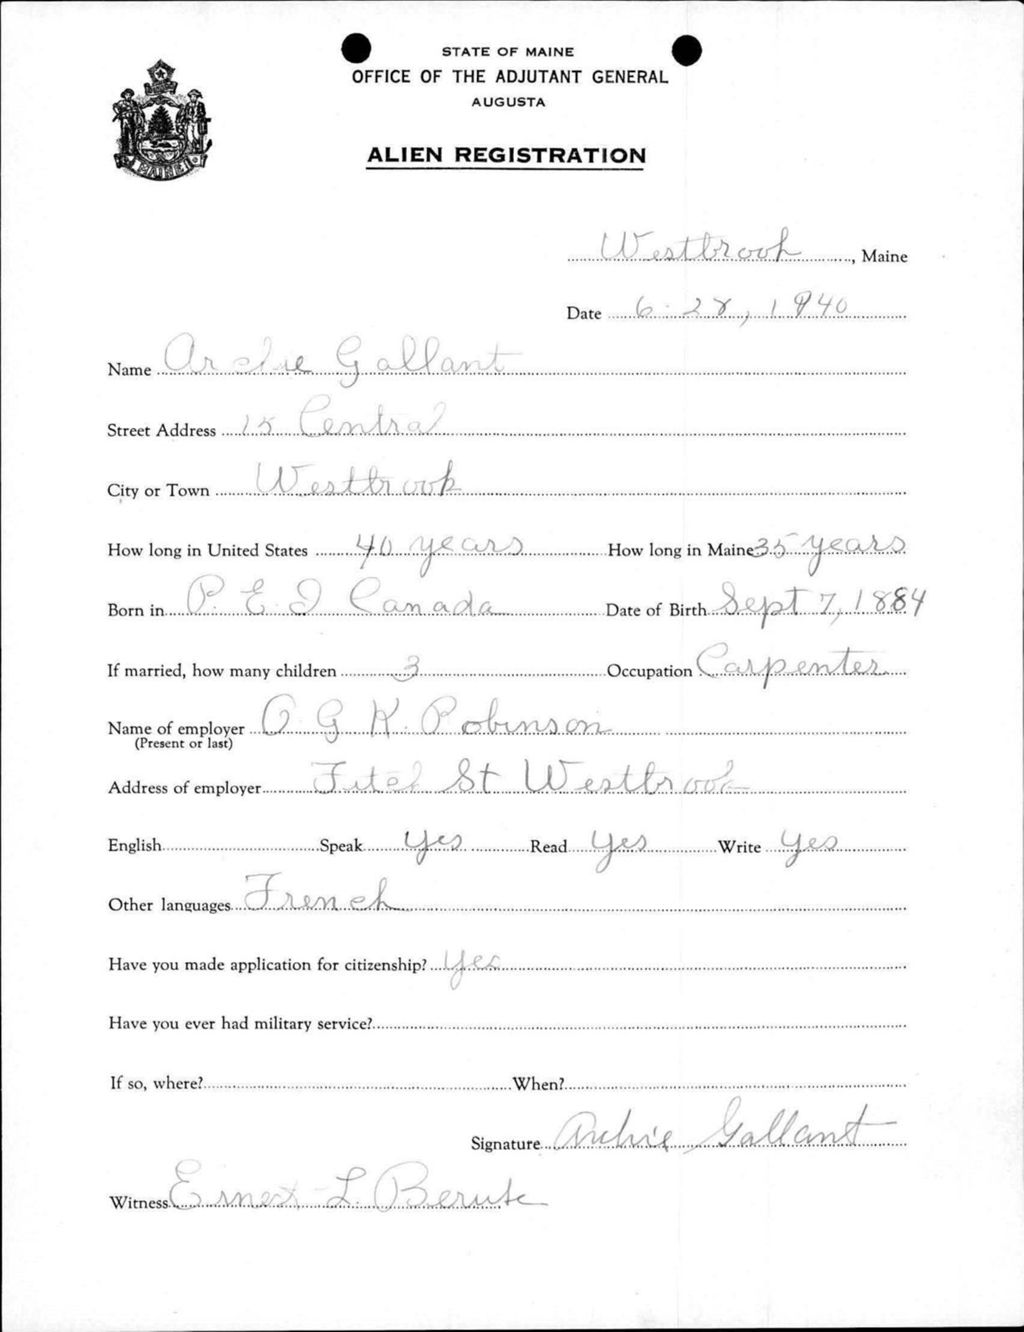 STATE OF MAINE
OFFICE OF THE ADJUTANT GENERAL
AUGUSTA
ALIEN REGISTRATION
MAINE
Westbrook, Maine
Date 6-28, 1940
Name Archie Gallant
Street Address 15 Central
City or Town Westbrook
How long in United States 40 years How long in Maine 35 years
Born in P. E. I Canada Date of Birth Sept 7, 1884
If married, how many children 3 Occupation Carpenter
Name of employer O G K Robinson
(Present or last)
Address of employer Fitch St Westbrook
English Speak Yes Read Yes Write Yes
Other languages French
Have you made application for citizenship? Yes
Have you ever had military service?
If so, where? When?
Signature Archie Gallant
Witness Ernest L.